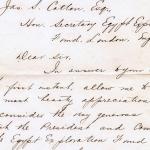 Jas. S. Cotton, Esq.
Hon. Secretary Egypt Exp
Fund. London.
Dear Sir.
In answer to your
first instant, allow me to
most hearty appreciation
consider the very generous
the President and Com
Egypt Exploration Fund